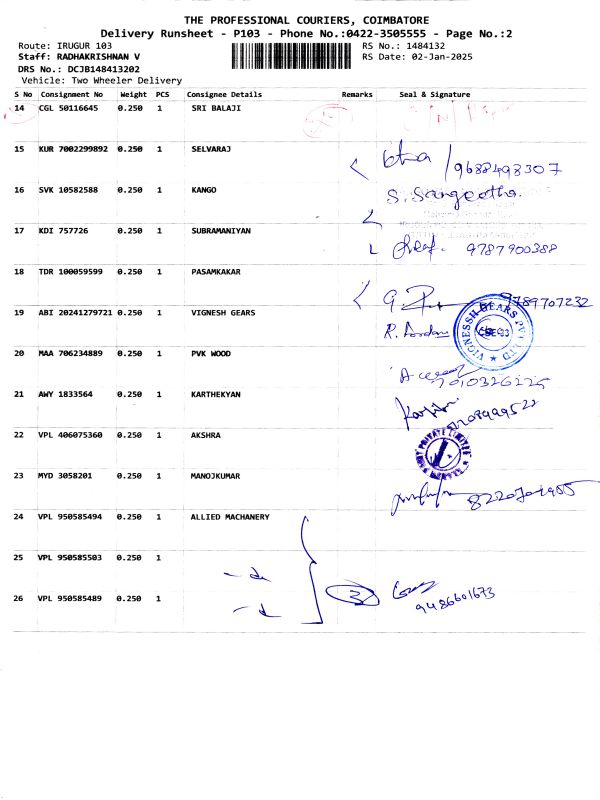 THE PROFESSIONAL COURIERS, COIMBATORE
Delivery Runsheet - P103 - Phone No.:0422-3505555 - Page No.:2
Route: IRUGUR 103 RS No.: 1484132
Staff: RADHAKRISHNAN V RS Date: 02-Jan-2025
DRS No.: DCJB148413202
Vehicle: Two Wheeler Delivery
S No Consignment No Weight PCS Consignee Details Remarks Seal & Signature
14 CGL 50116645 0.250 1 SRI BALAJI
15 KUR 7002299892 0.250 1 SELVARAJ
9688498307
16 SVK 10582588 0.250 1 KANGO S. Sangeetha.
17 KDI 757726 0.250 1 SUBRAMANIYAN
9787900388
18 TDR 100059599 0.250 1 PASAMKAKAR
9789707232
19 ABI 20241279721 0.250 1 VIGNESH GEARS
VIGNESSH GEARS PVT LTD
20 MAA 706234889 0.250 1 PVK WOOD
21 AWY 1833564 0.250 1 KARTHEKYAN
22 VPL 406075360 0.250 1 AKSHRA
PRIVATE LIMITED
23 MYD 3058201 0.250 1 MANOJKUMAR
24 VPL 950585494 0.250 1 ALLIED MACHANERY
25 VPL 950585503 0.250 1
26 VPL 950585489 0.250 1 3
9486601673